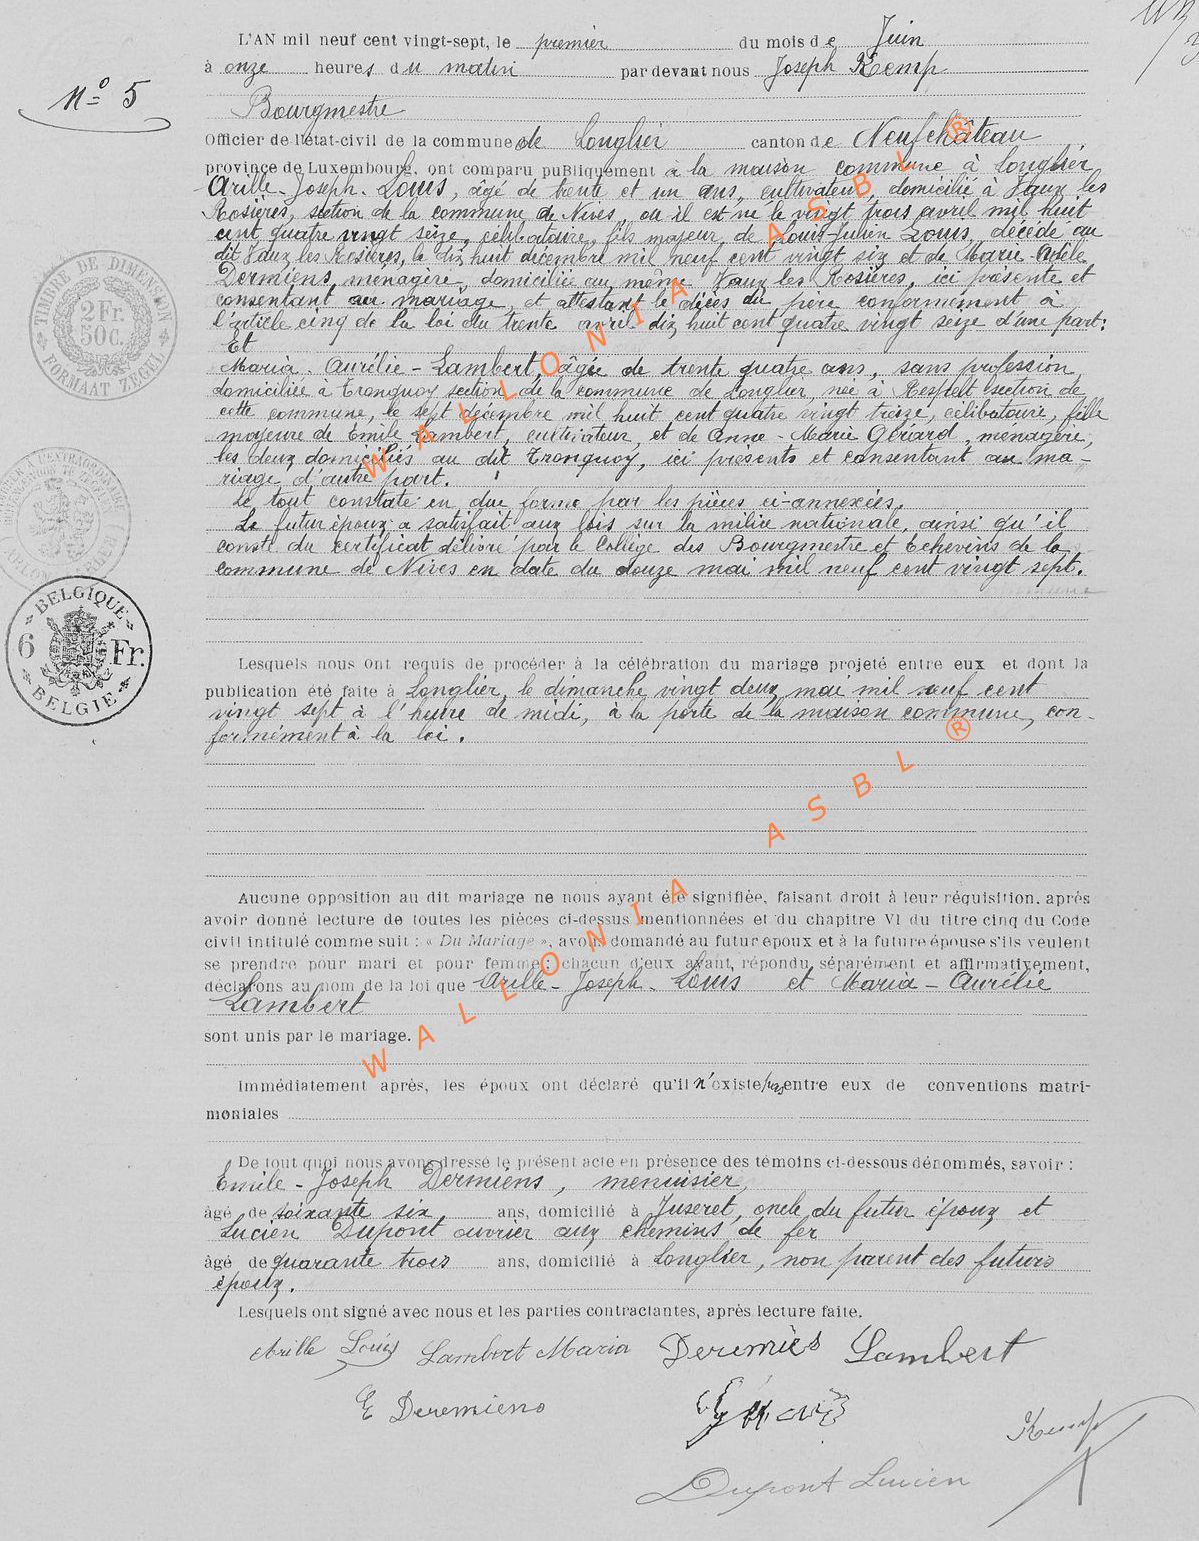 L'AN mil neuf cent vingt-sept, le premier du mois de Juin
à onze heures du matin par devant nous Joseph Kemp
N° 5
Bourgmestre
Officier de l'état-civil de la commune de Longlier canton de Neufchâteau
province de Luxembourg, ont comparu publiquement à la maison commune à Longlier
Arille-Joseph-Louis, âgé de trente et un ans, cultivateur, domicilié à Vaux les
Rosières, section de la commune de Nives, où il est né le vingt trois avril mil huit
cent quatre vingt seize, célibataire, fils majeur de Louis-Julien Louis, décédé au
dit Vaux les Rosières, le dix huit décembre mil neuf cent vingt six et de Marie-Adèle
Dermiens, ménagère, domiciliée au même Vaux les Rosières, ici présente et
consentant au mariage et attestant le décès du père conformément à
l'article cinq de la loi du trente avril dix huit cent quatre vingt seize d'une part:
Et
Maria-Aurélie-Lambert, âgée de trente quatre ans, sans profession,
domiciliée à Tronquoy section de la commune de Longlier, née à Respelt section de
cette commune, le sept décembre mil huit cent quatre vingt treize, célibataire, fille
majeure de Emile Lambert, cultivateur, et de Anne-Marie Gérard, ménagère,
les deux domiciliés au dit Tronquoy, ici présents et consentant au ma-
riage d'autre part.
Le tout constaté en due forme par les pièces ci-annexées.
Le futur époux a satisfait aux lois sur la milice nationale, ainsi qu'il
conste du certificat délivré par le Collège des Bourgmestre et Echevins de la
commune de Nives en date du douze mai mil neuf cent vingt sept.
TIMBRE DE DIMENSION
2 Fr.
50c.
FORMAAT ZEGEL
BELGIQUE
6 Fr.
BELGIE
Lesquels nous ont requis de procéder à la célébration du mariage projeté entre eux et dont la
publication été faite à Longlier, le dimanche vingt deux mai mil neuf cent
vingt sept à l'heure de midi, à la porte de la maison commune, con-
formément à la loi.
Aucune opposition au dit mariage ne nous ayant été signifiée, faisant droit à leur réquisition, après
avoir donné lecture de toutes les pièces ci-dessus mentionnées et du chapitre VI du titre cinq du Code
civil intitulé comme suit : « Du Mariage », avons demandé au futur époux et à la future épouse s'ils veulent
se prendre pour mari et pour femme ; chacun d'eux ayant, répondu, séparément et affirmativement,
déclarons au nom de la loi que Arille-Joseph-Louis et Maria-Aurélie
Lambert
sont unis par le mariage.
Immédiatement après, les époux ont déclaré qu'il n'existe pas entre eux de conventions matri-
moniales
De tout quoi nous avons dressé le présent acte en présence des témoins ci-dessous dénommés, savoir :
Emile-Joseph Dermiens, menuisier,
âgé de soixante six ans, domicilié à Juseret, oncle du futur époux et
Lucien Dupont ouvrier aux chemins de fer
âgé de quarante trois ans, domicilié à Longlier, non parent des futurs
époux.
Lesquels ont signé avec nous et les parties contractantes, après lecture faite.
Arille Louis Lambert Maria Deremiès Lambert
E Deremiens
Kemp
Dupont Lucien
WALLONIA ASBL ®
WALLONIA ASBL ®